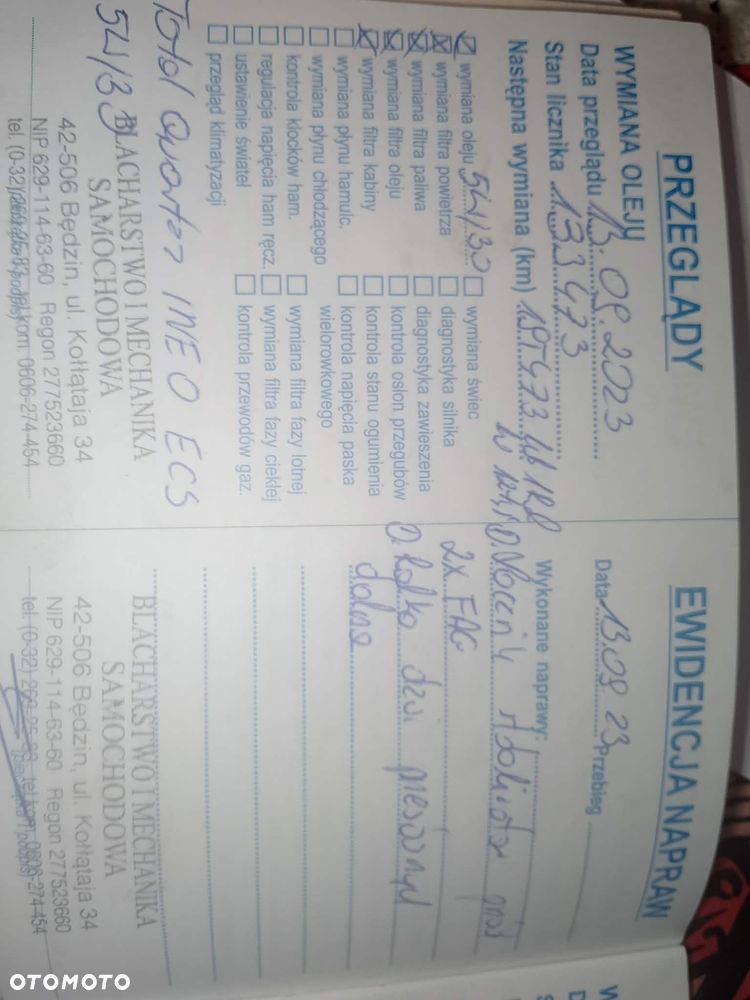 PRZEGLĄDY
WYMIANA OLEJU
Data przeglądu 13.09.2023
Stan licznika 183473
Następna wymiana (km)
wymiana oleju 5W30
wymiana filtra powietrza
wymiana filtra paliwa
wymiana filtra oleju
wymiana filtra kabiny
wymiana płynu hamulc.
wymiana płynu chłodzącego
kontrola klocków ham.
regulacja napięcia ham ręcz.
ustawienie świateł
przegląd klimatyzacji
wymiana świec
diagnostyka silnika
diagnostyka zawieszenia
kontrola osłon przegubów
kontrola stanu ogumienia
kontrola napięcia paska
wielorowkowego
wymiana filtra fazy lotnej
wymiana filtra fazy ciekłej
kontrola przewodów gaz.
Total Quartz INEO ECS
5W/30
BLACHARSTWO I MECHANIKA
SAMOCHODOWA
42-506 Będzin, ul. Kołłątaja 34
NIP 629-114-63-60 Regon 277523660
tel. (0-32) kom. 0606-274-454
EWIDENCJA NAPRAW
Data 13.09 23 Przebieg
Wykonane naprawy:
2x FAG
dolne
BLACHARSTWO I MECHANIKA
SAMOCHODOWA
42-506 Będzin, ul. Kołłątaja 34
NIP 629-114-63-60 Regon 277523660
tel. (0-32) tel kom. 0606-274-454
OTOMOTO